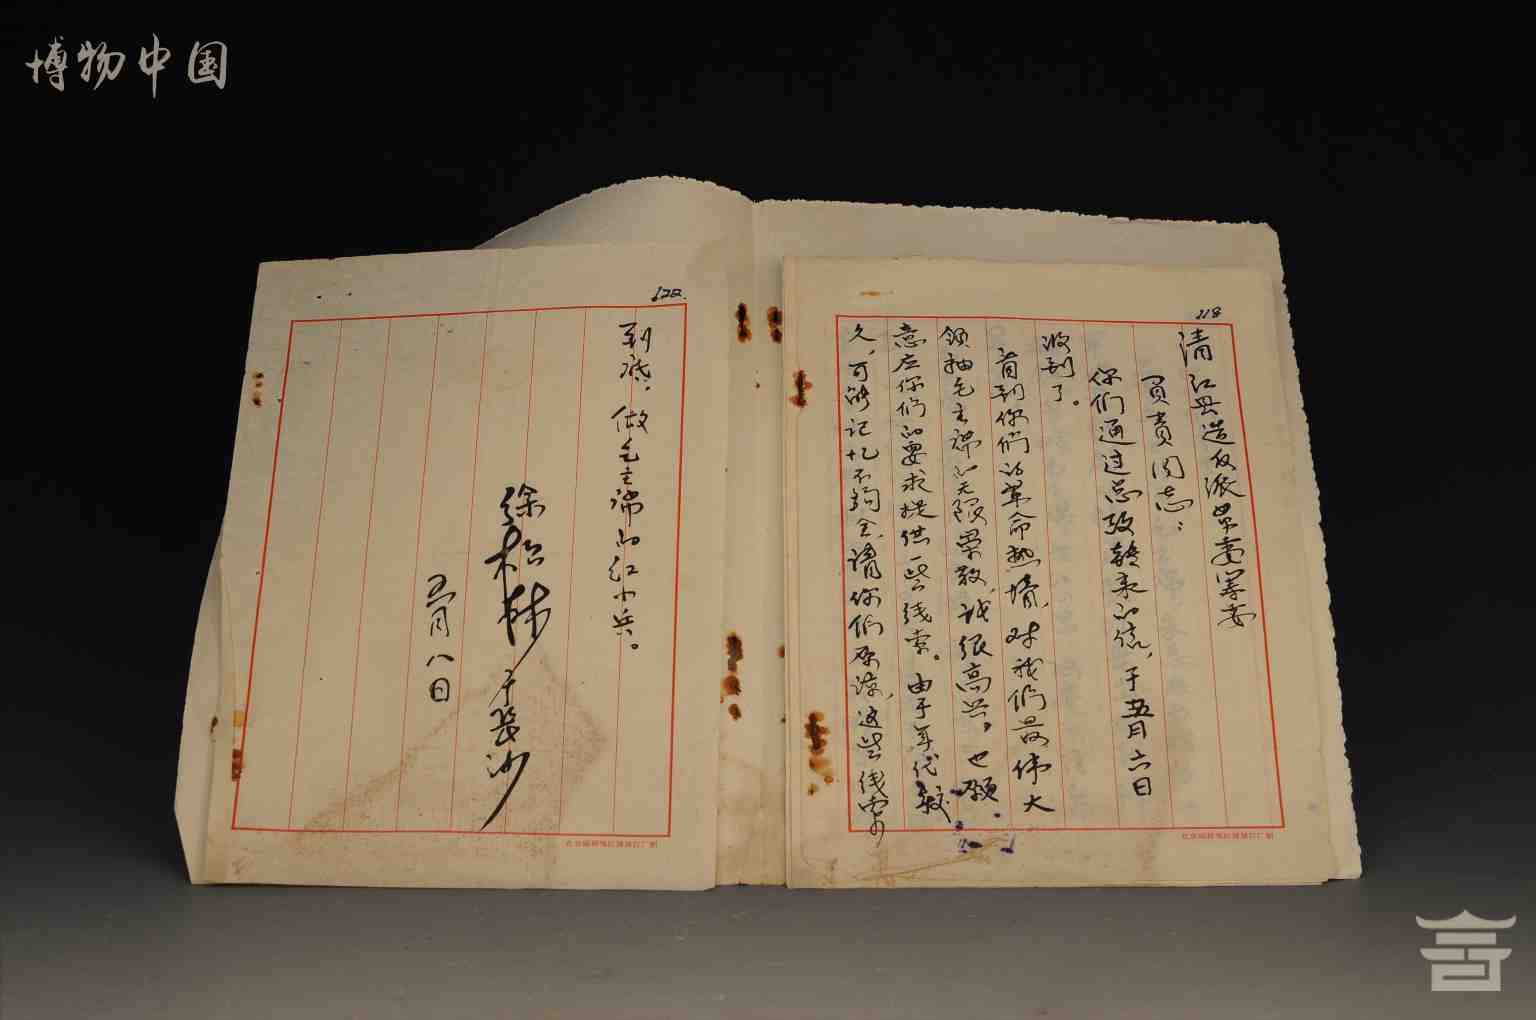 博物中国
218
清江县造反派革委筹委
负责同志:
你们通过总政转来的信,于五月六日
收到了。
看到你们的革命热情,对我们最伟大
领袖毛主席的无限崇敬,我很高兴。也愿
意应你们的要求提供一些线索。由于年代较
久,可能记忆不夠全,请你们原谅,这些线索
622
到底,做毛主席的红小兵。
徐松林 于长沙
五月八日